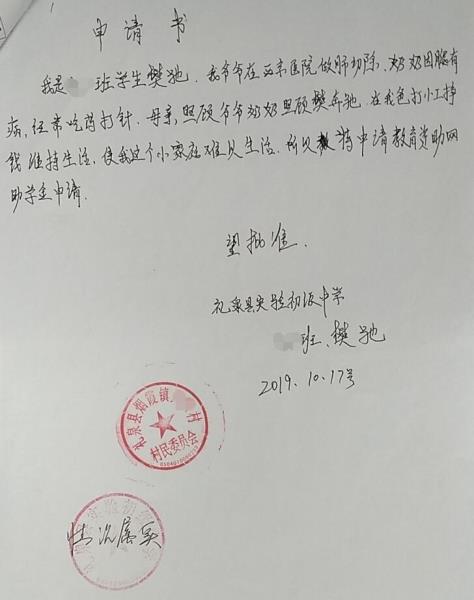 申请书
我是 班学生樊驰. 我爷爷在西京医院做肺切除、奶奶因腿有
病,经常吃药打针. 母亲,照顾爷爷奶奶照顾樊奔驰. 爸打小工挣
钱维持生活,使我这个小家庭难以生活. 所以 特申请教育资助网
助学金申请.
望批准.
礼泉县实验初级中学
班、樊驰
2019.10.17号
礼泉县烟霞镇 村
村民委员会
情况属实